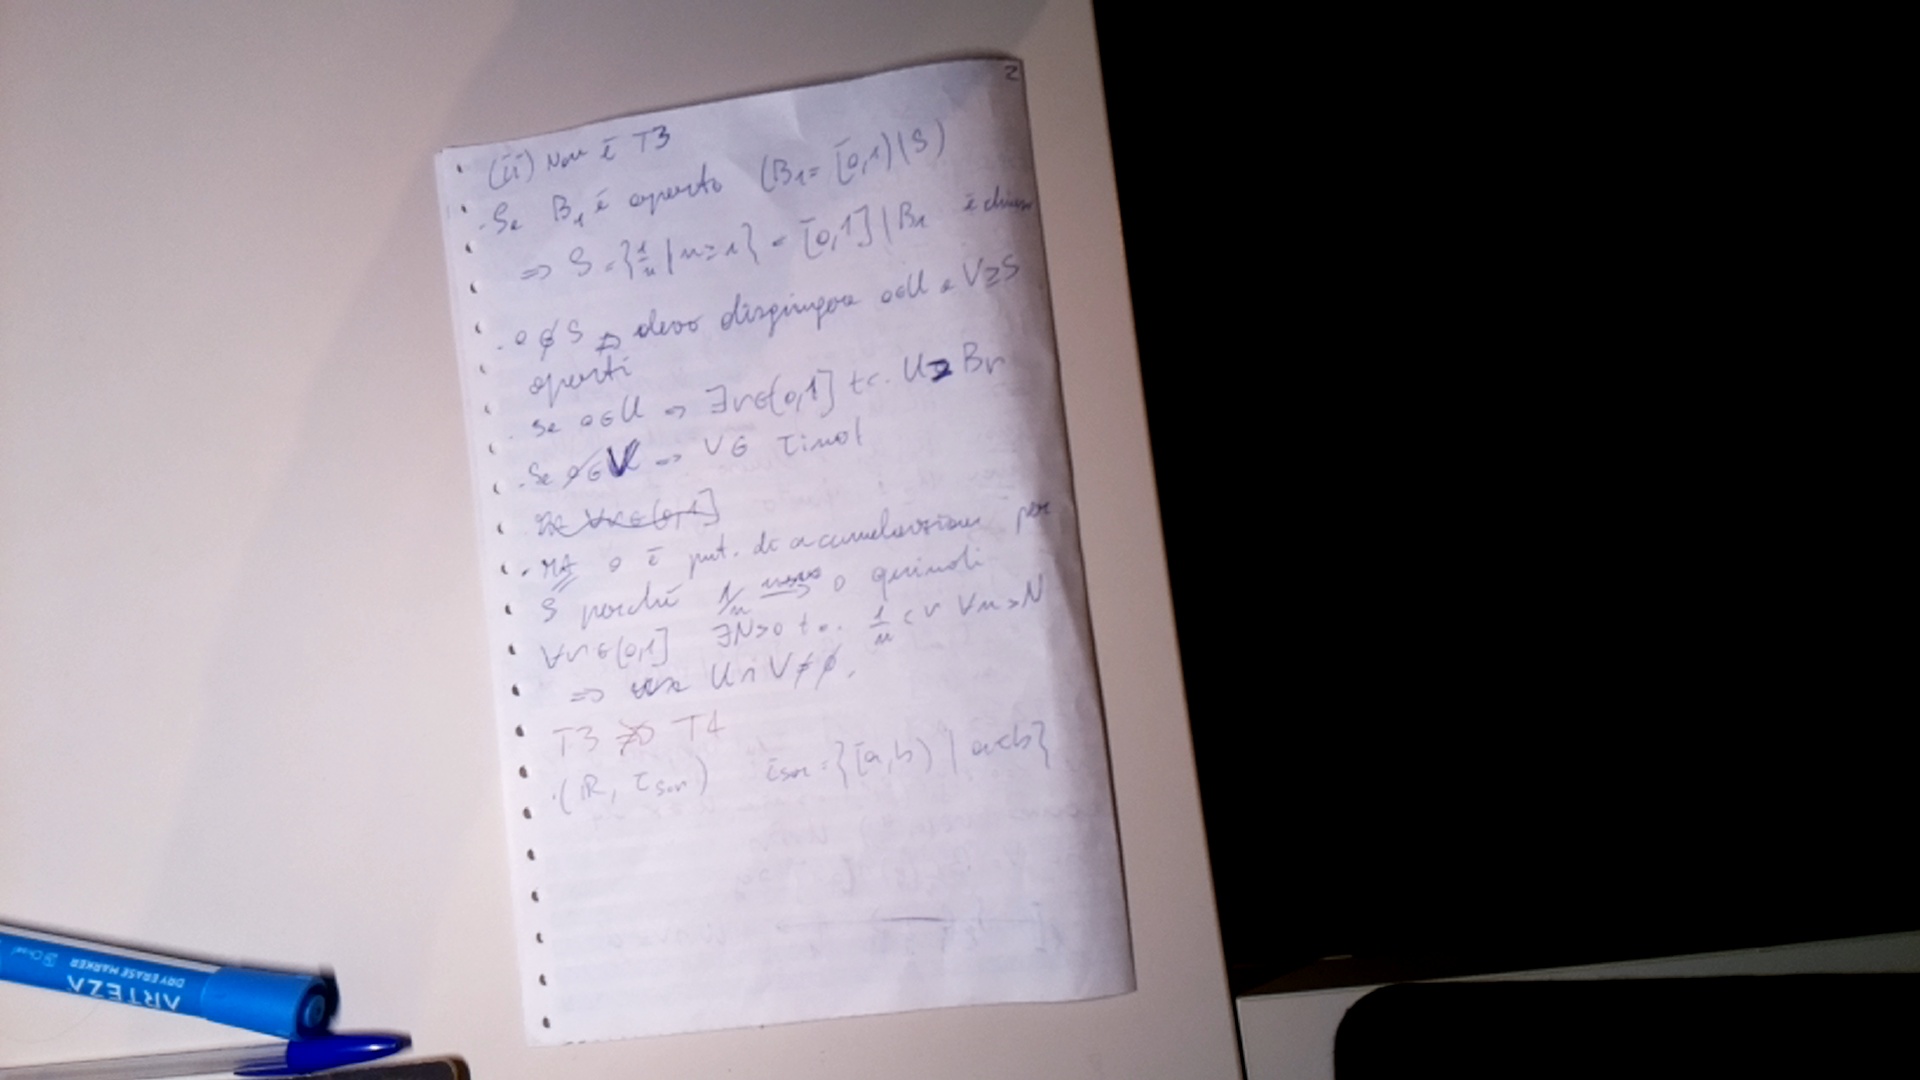 2
(ii) Non è T3
. Se B₁ è aperto (B₁= [0,1)\S)
=> S = {1/n | n≥1} = [0,1] \ B₁ è chiuso
. 0 ∉ S => devo disgiungere 0∈U e V⊇S
aperti
. Se 0∈U => ∃r∈(0,1] tc. U⊇Br
. Se 0∉V => V∈ τ
∀r∈(0,1]
. MA 0 è pnt. di accumulazione per
S perché 1/n → 0 quindi
∀r∈(0,1] ∃N>0 t.c. 1/n < r ∀n>N
=> U∩V≠∅.
T3 ≠> T4
.(ℝ, τsor) τsor = {[a,b) | a<b}
ARTEZA
DRY ERASE MARKER